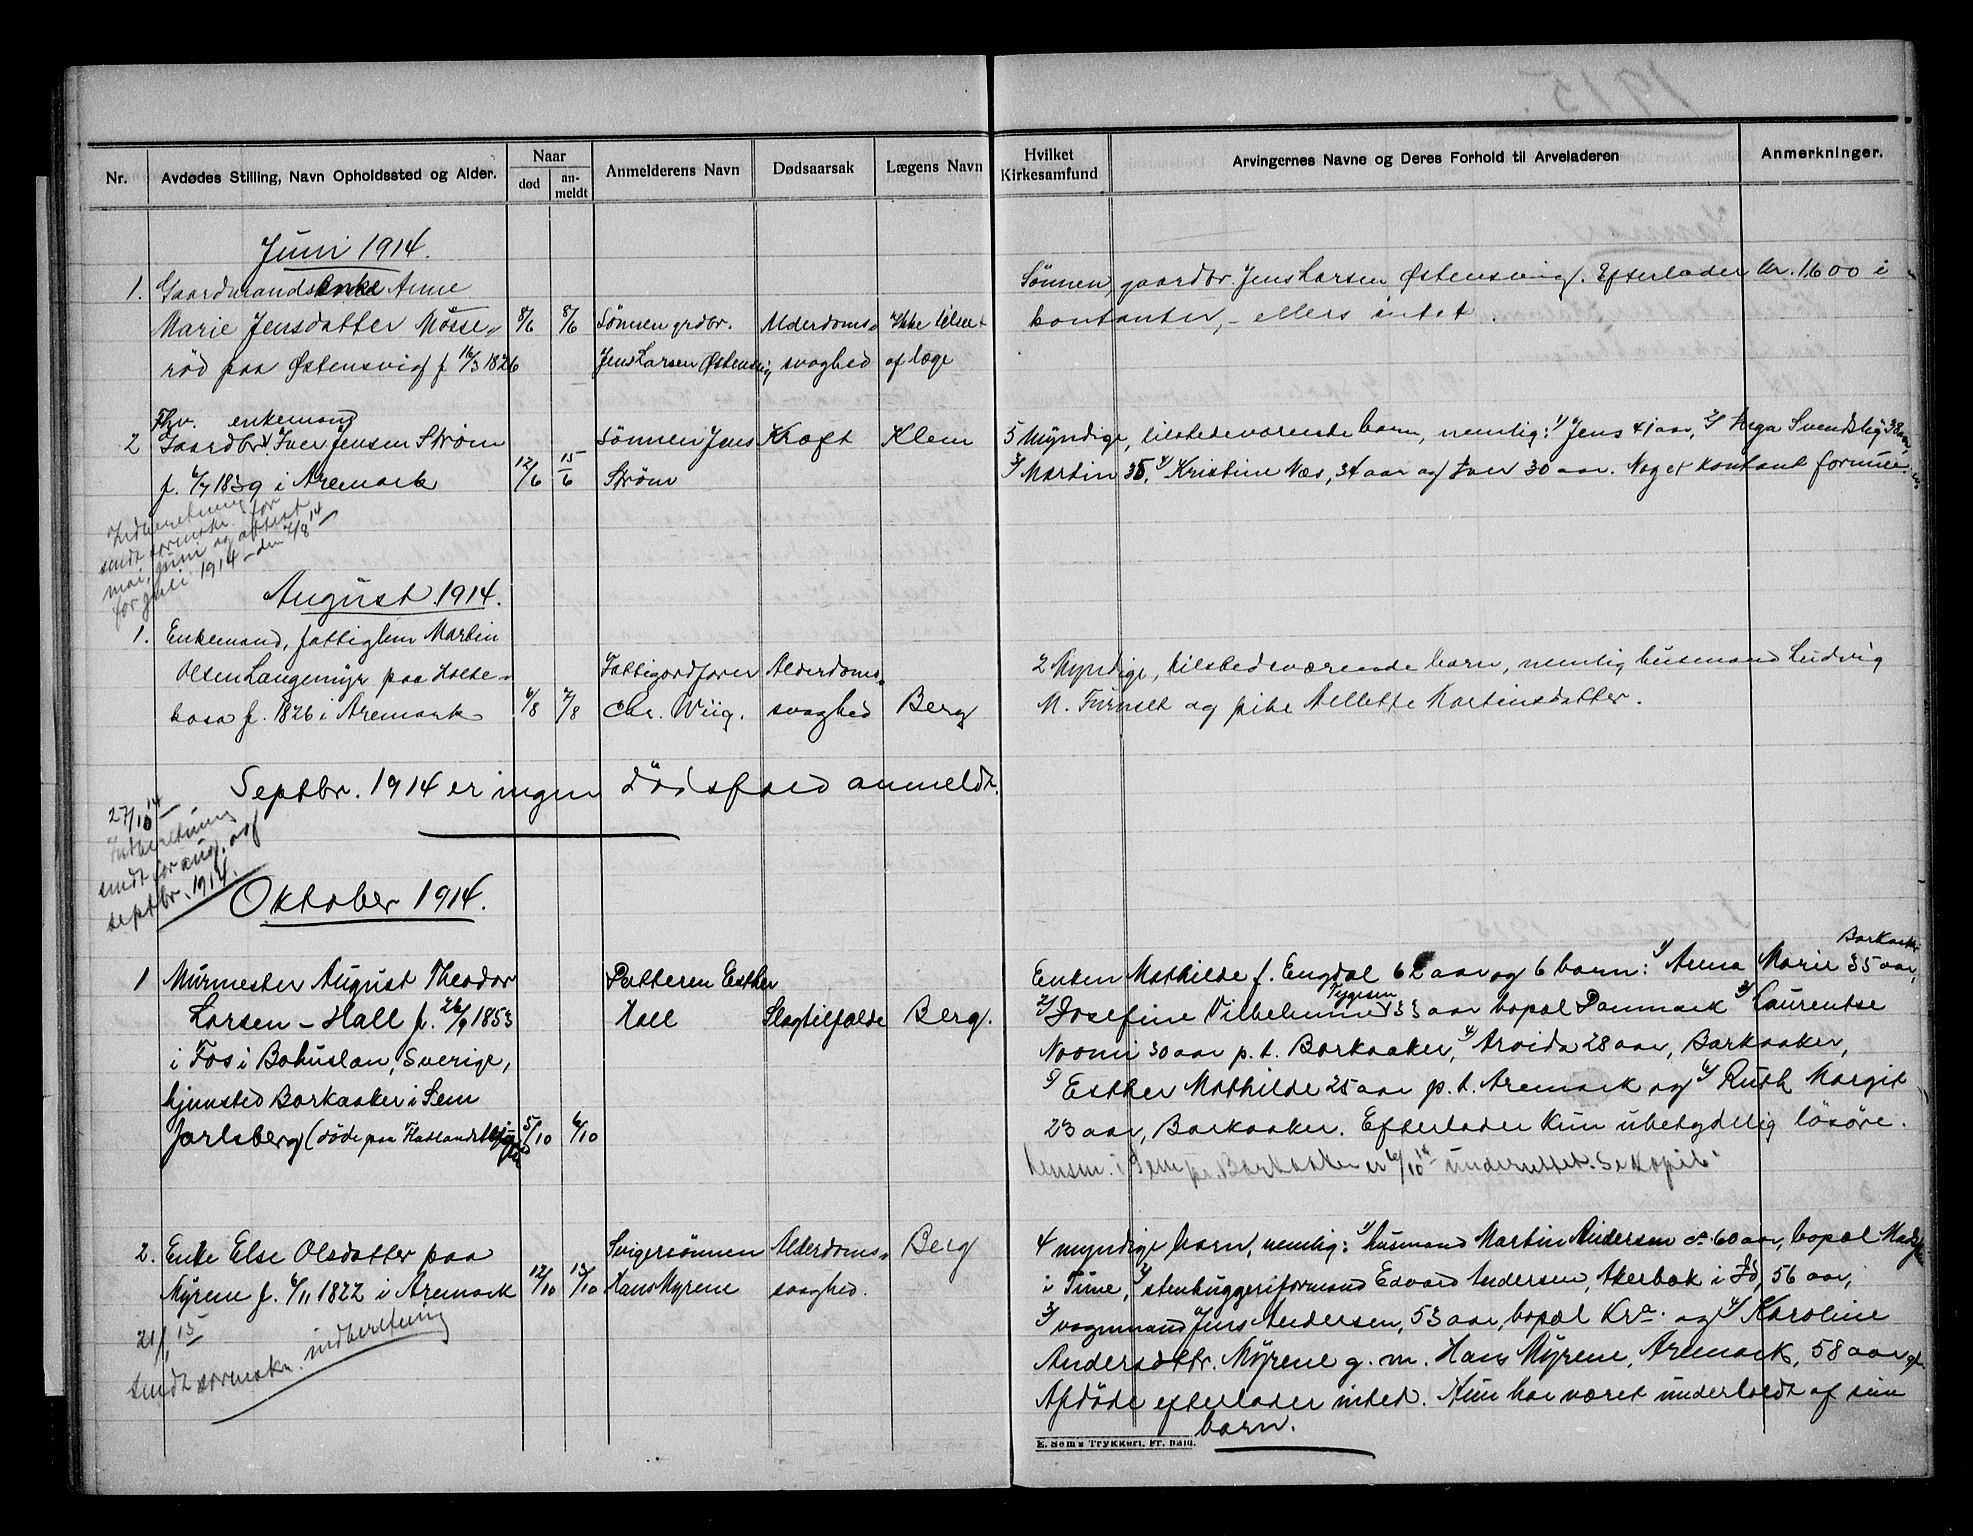 1915.
Nr.
Avdødes Stilling, Navn Opholdssted og Alder.
Naar
død
an-
meldt
Anmelderens Navn
Dødsaarsak
Lægens Navn
Hvilket
Kirkesamfund
Arvingernes Navne og Deres Forhold til Arveladeren
Anmerkninger.
Juni 1914.
1. Gaardmandsenke Anne
Marie Jensdatter Mosse-
rød paa Østensvig f. 16/3 1826
8/6
8/6
Sønnen grdbr.
Jens Larsen Østensvig
Alderdoms-
svaghed
Ikke tilset
af læge
Sønnen, gaardbr. Jens Larsen Østensvig. Efterlader kr. 1600 i
kontanter, - ellers intet.
Fhv. enkemand
2 Gaardbr. Iver Jensen Strøm
f. 6/7 1839 i Aremark
12/6
15/6
Sønnen Jens
Strøm
Kræft
Klem
5 myndige, tilstedeværende barn, nemlig: 1/ Jens 41 aar, 2/ Inga Svendsby 38 aar,
3/ Martin 35, 4/ Kristine Næs, 34 aar og Iver 30 aar. Noget kontant formue.
Indberetning
sendt sormskr. for
mai, juni og attest
for juli 1914 - den 7/8 14
August 1914.
1. Enkemand, fattiglem Martin
Olsen Langemyr paa Holte-
kasa f. 1826 i Aremark
6/8
7/8
Fattigordfører
Chr. Wiig.
Alderdoms-
svaghed
Berg
2 myndige, tilstedeværende barn, nemlig husmand Ludvig
M. Furuset og pike Mellette Martinsdatter.
Septbr. 1914 er ingen dødsfald anmeldt.
27/10 14
Indberetning
sendt for aug. og
septbr. 1914.
Oktober 1914.
1 Murmester August Theodor
Larsen - Hall f. 26/9 1853
i Fos i Bohuslan, Sverige,
hjemsted Barkaaker i Sem
Jarlsberg (døde paa
5/10
6/10
Datteren Esther
Hall
Slagtilfælde
Berg.
Enken Mathilde f. Engdal 62 aar og 6 barn: 1/ Anna Marie 35 aar, Barkaaker
2/ Josefine Vilhelmine Tygesen 33 aar bopæl Danmark 3/ Laurentse
Noomi 30 aar p. t. Barkaaker, 4/ Arvida 28 aar, Barkaaker,
5/ Esther Mathilde 25 aar p. t. Aremark og 6/ Ruth Margit
23 aar, Barkaaker. Efterlader kun ubetydelig løsøre.
Lensm. i Sem pr. Barkaaker er 6/10 14 underrettet. Se kopib.
2. Enke Else Olsdatter paa
Myrene f. 6/11 1822 i Aremark
12/10
13/10
Svigersønnen
Hans Myrene
Alderdoms-
svaghed.
Berg
4 myndige barn, nemlig: 1/ husmand Martin Andersen ca. 60 aar, bopæl
i Tune, 2/ stenhuggeriformand Edvard Andersen, Akerbæk i Id, 56 aar,
3/ vognmand Jens Andersen, 53 aar, bopæl Kra. og 4/ Karoline
Andersdtr. Myrene g. m. Hans Myrene, Aremark, 58 aar gl.
Afdøde efterlader intet. Hun har været underholdt af sine
barn.
21/1 15
Sendt sormskr. indberetning
E. Sem's Trykkeri, Fr. hald.